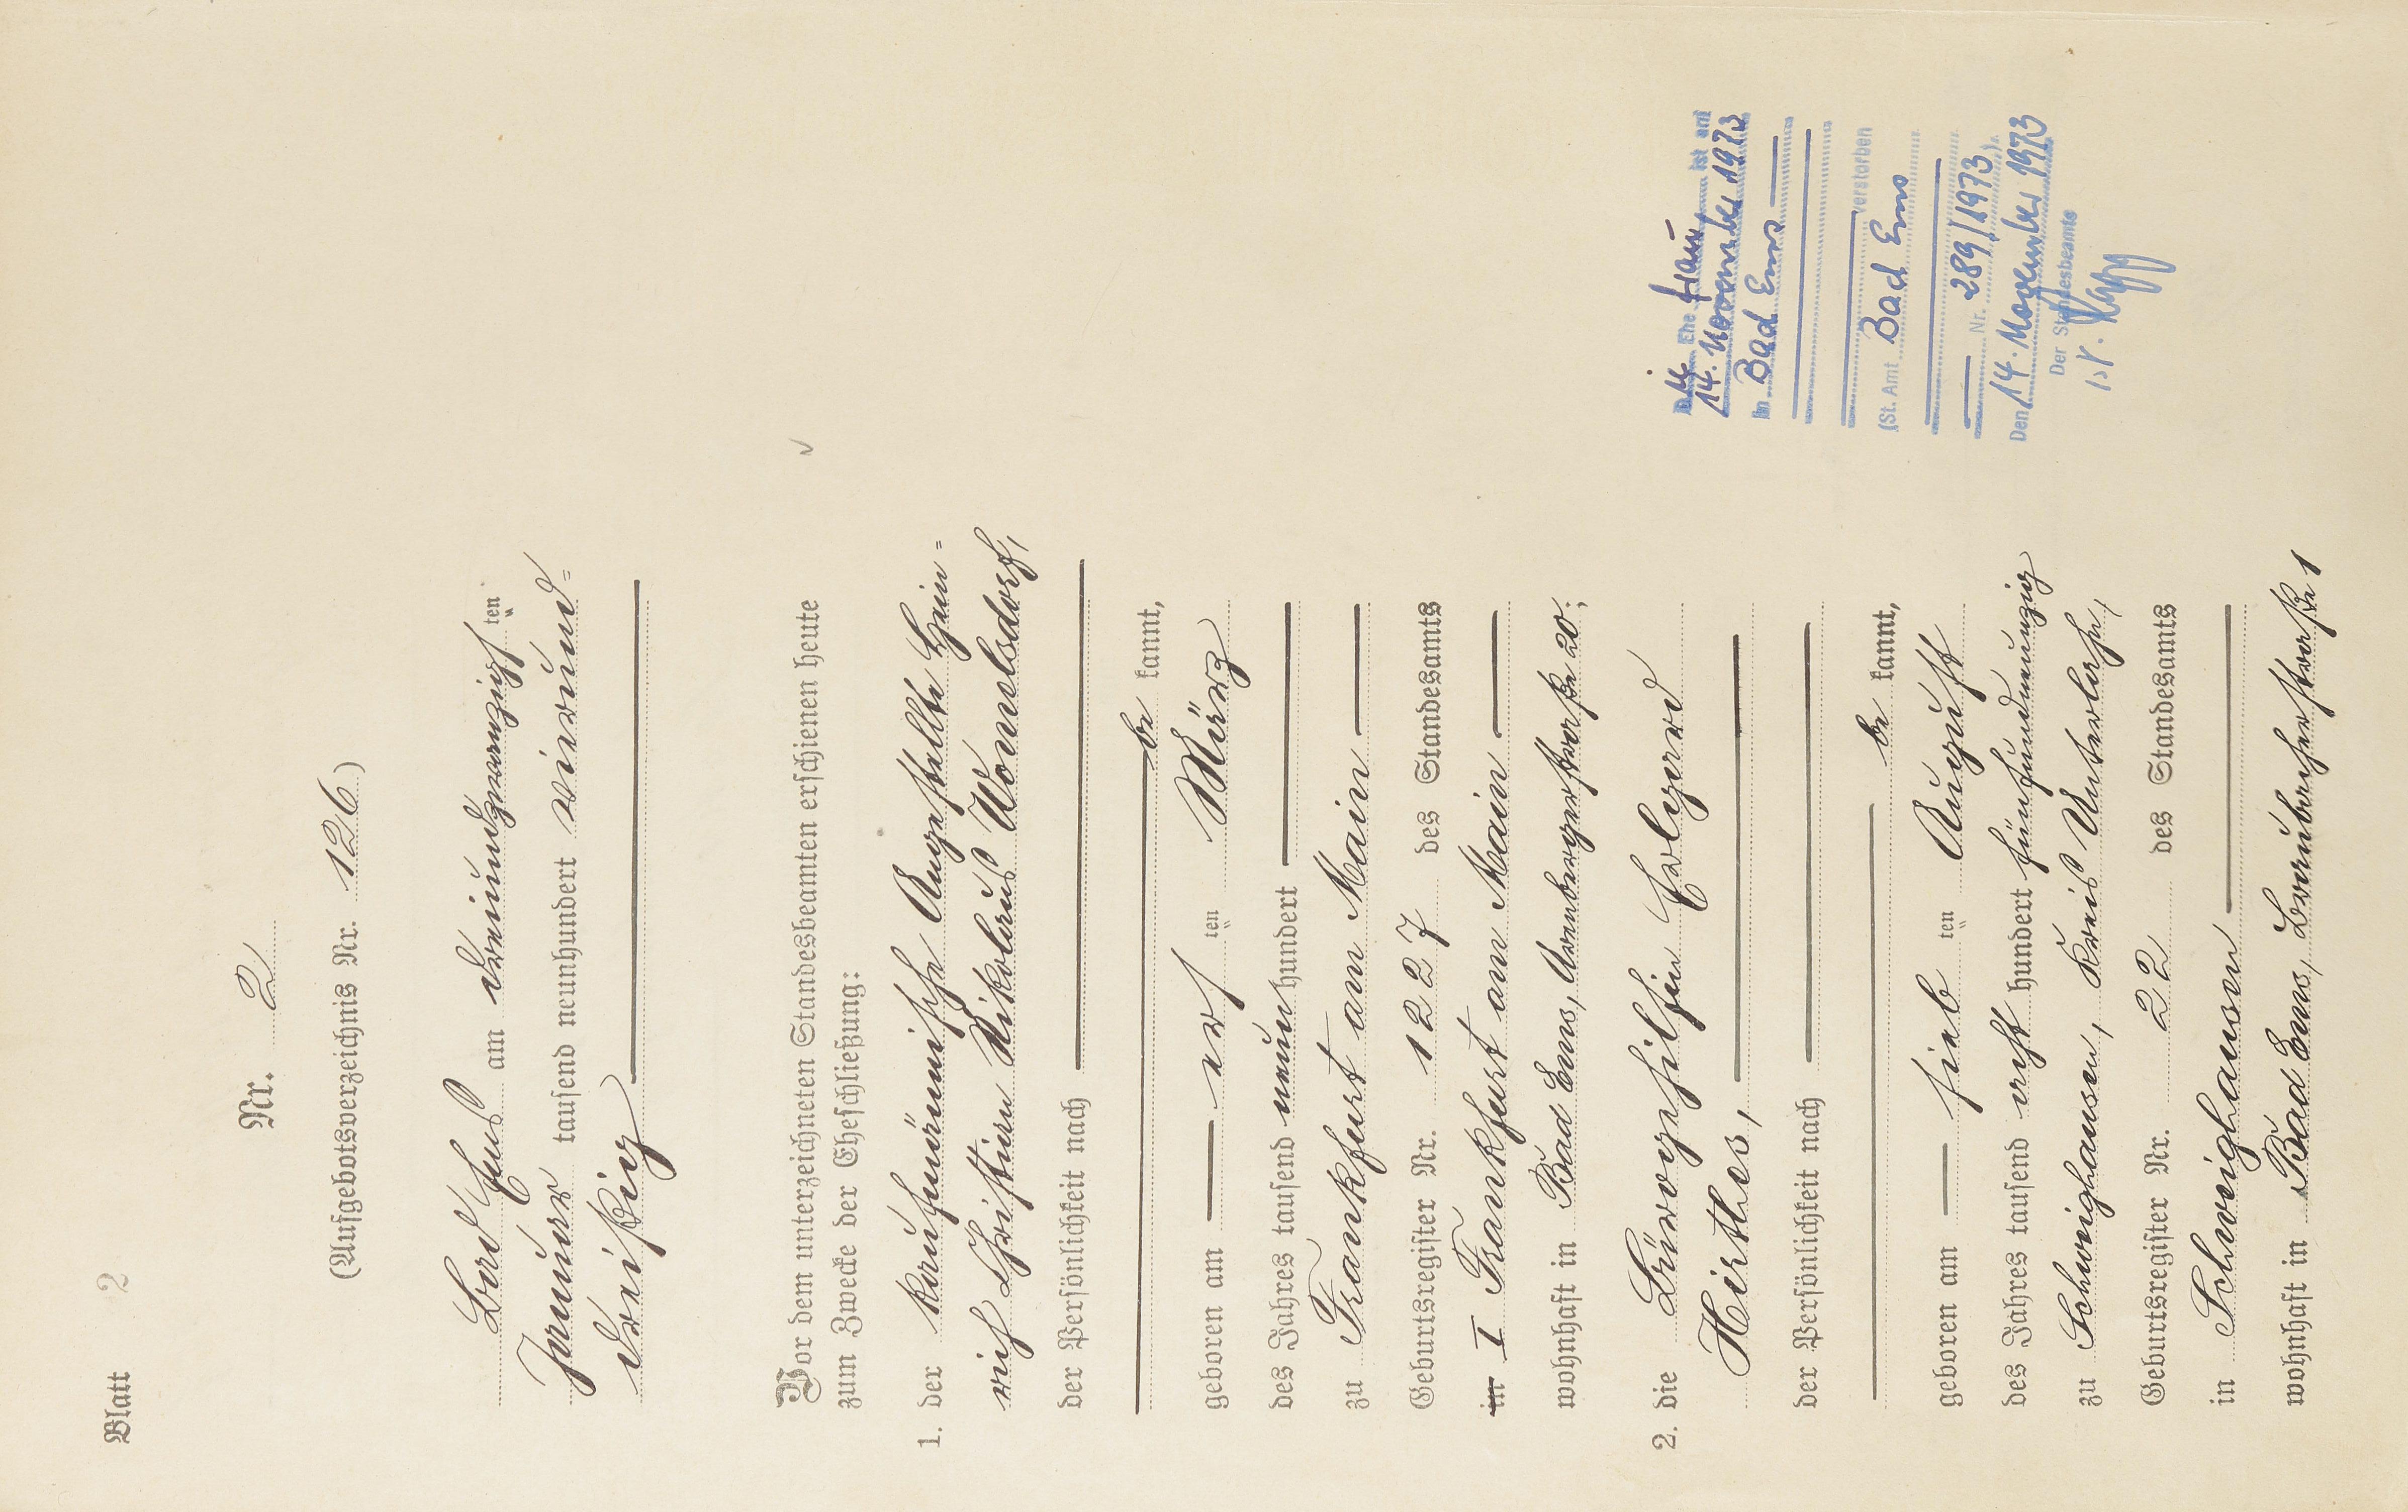 Blatt 2
Nr. 2
(Aufgebotsverzeichnis Nr. 126)
Bad Ems am dreiundzwanzigsten
Januar tausend neunhundert vierund=
dreißig
Vor dem unterzeichneten Standesbeamten erschienen heute
zum Zwecke der Eheschließung:
1. der kaufmännische Angestellte Hein=
rich Christian Nikolaus Wombsdorf,
der Persönlichkeit nach
be kannt,
geboren am ersten März
des Jahres tausend neunhundert
zu Frankfurt am Main
Geburtsregister Nr. 1227 des Standesamts
in I Frankfurt am Main
wohnhaft in Bad Ems, Arenbergerstraße 20;
2. die Bürogehilfin Erligard
Hirthes,
der Persönlichkeit nach
be kannt,
geboren am siebten August
des Jahres tausend acht hundert fünfundneunzig
zu Schweighausen, Kreis Unterlahn,
Geburtsregister Nr. 22 des Standesamts
in Schweighausen
wohnhaft in Bad Ems, Braubacherstraße 1
Die Ehefrau ist am
14. November 1973
in Bad Ems
verstorben
(St. Amt Bad Ems
Nr. 289/1973).
Den 14. November 1973
Der Standesbeamte